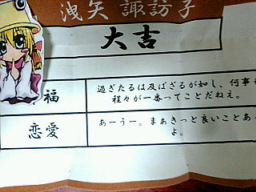 洩矢 諏訪子
大吉
福
過ぎたるは及ばざるが如し、何事
程々が一番ってことだねえ。
恋愛
あーうー。まぁきっと良いことあ
よ。